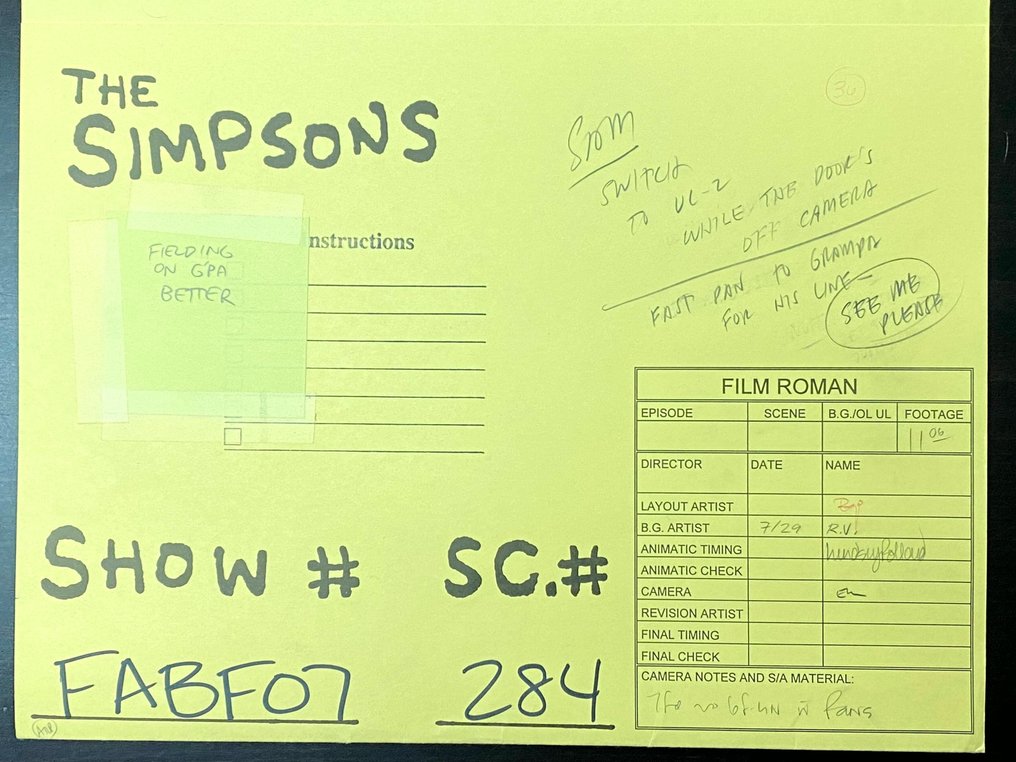 THE
SIMPSONS
30
SWITCH
TO UL-2
WHILE THE DOOR'S
OFF CAMERA
FAST PAN TO GRAMPA
FOR HIS LINE—
SEE ME
PLEASE
nstructions
FIELDING
ON G'PA
BETTER
FILM ROMAN
EPISODE SCENE B.G./OL UL FOOTAGE
11 06
DIRECTOR DATE NAME
LAYOUT ARTIST
B.G. ARTIST 7/29 R.V.
ANIMATIC TIMING
ANIMATIC CHECK
CAMERA
REVISION ARTIST
FINAL TIMING
FINAL CHECK
CAMERA NOTES AND S/A MATERIAL:
SHOW # SC.#
FABF07 284